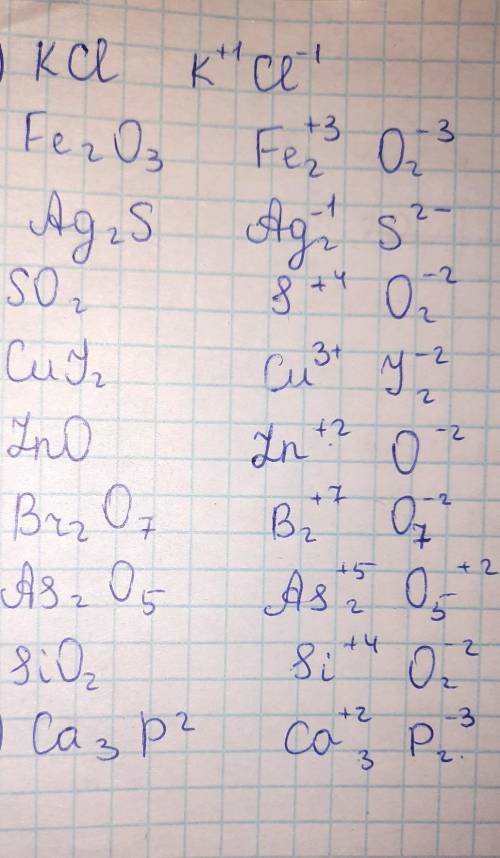 ) KCl K⁺¹ Cl⁻¹
Fe₂O₃ Fe₂⁺³ O₂⁻³
Ag₂S Ag₂⁻¹ S²⁻
SO₂ S⁺⁴ O₂⁻²
CuY₂ Cu³⁺ Y₂⁻²
ZnO Zn⁺² O⁻²
Br₂O₇ B₂⁺⁷ O₇⁻²
As₂O₅ As₂⁺⁵ O₅⁺²
SiO₂ Si⁺⁴ O₂⁻²
) Ca₃P² Ca₃⁺² P₂⁻³.